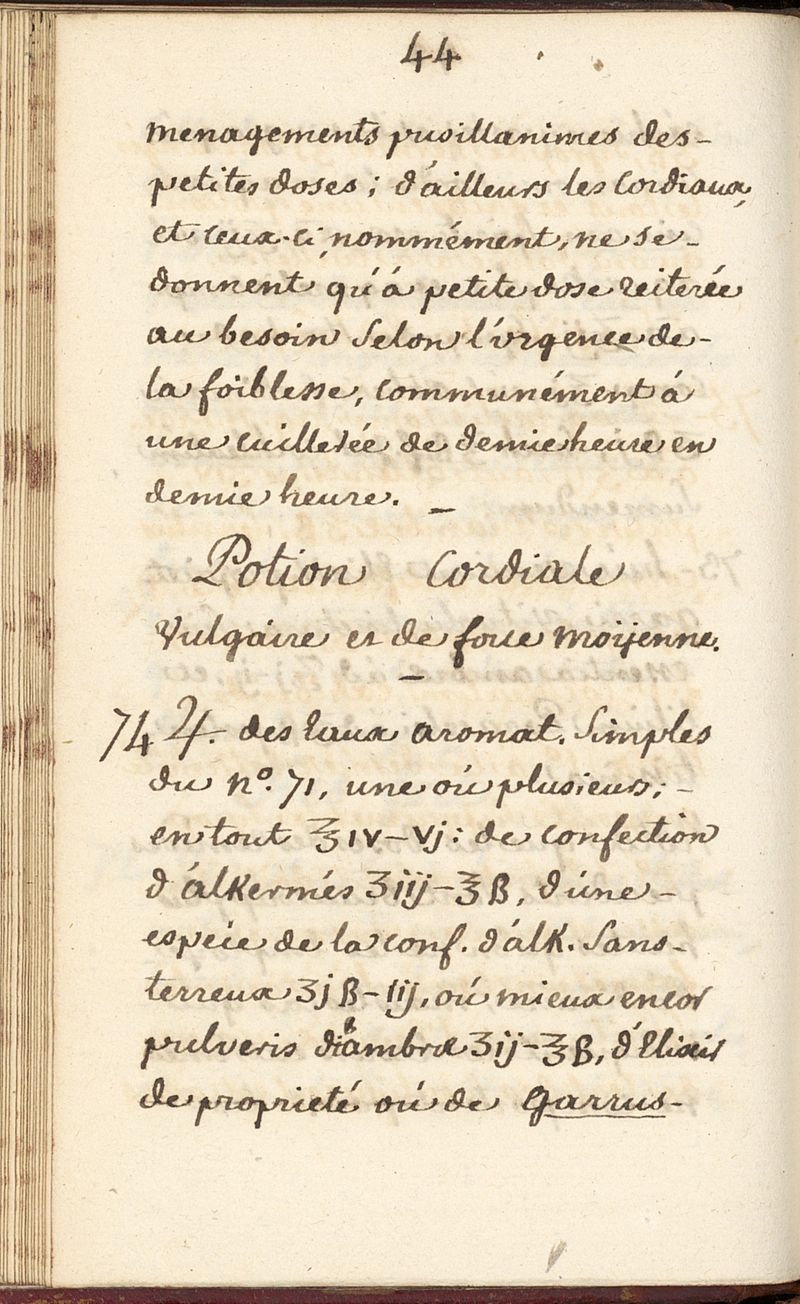 44
menagements pusillanimes des-
petites doses; d'ailleurs les Cordiaux,
et ceux-ci nommément, ne se-
donnent qu'á petite dose reiterée
au besoin Selon l'urgence de-
la foiblesse, communément á
une cuillerée de demie heure en
demie heure. –
Potion Cordiale
Vulgaire et de force moÿenne.
–
74 ♃. des Eaux aromat. Simples
du nº. 71, une oú plusieurs; -
en tout ℥ IV – Vj: de confection
d'álKermés ʒ iij – ℥ ß, d'úne -
espéce de la conf. d'álK. Sans-
terreux ʒj ß – iij, oú mieux encor
pulveris diambræ ʒ ij – ℥ ß, d'Elixir
de proprieté oú de Garrus-